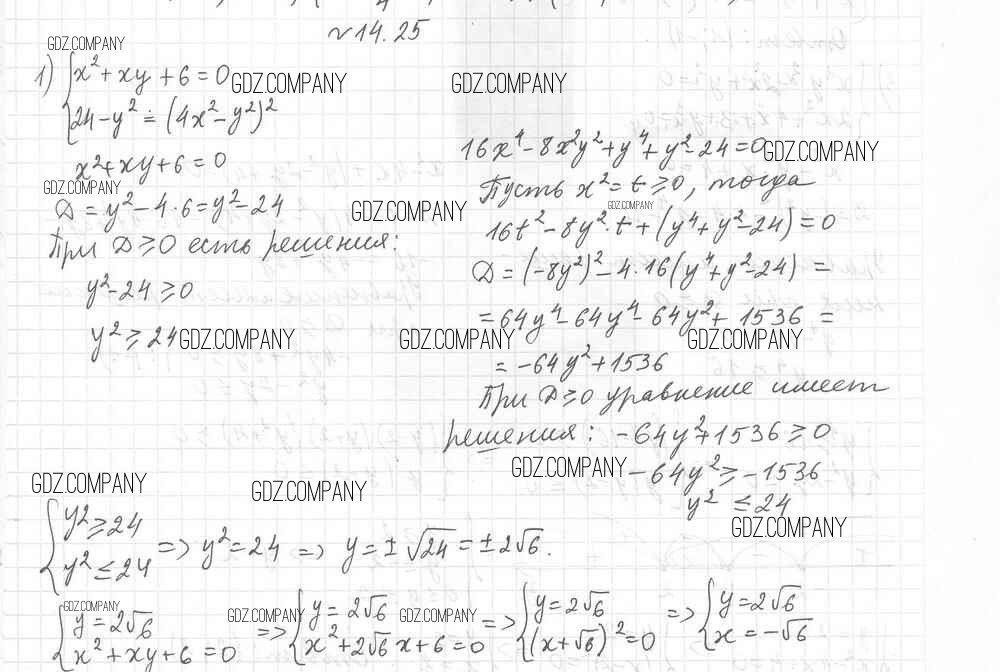 №14.25
GDZ.COMPANY
1) { x² + xy + 6 = 0 GDZ.COMPANY GDZ.COMPANY
24 - y² = (4x² - y²)²
x² + xy + 6 = 0
GDZ.COMPANY
D = y² - 4·6 = y² - 24
При D ≥ 0 есть решения:
y² - 24 ≥ 0
y² ≥ 24 GDZ.COMPANY
16x⁴ - 8x²y² + y⁴ + y² - 24 = 0 GDZ.COMPANY
Пусть x² = t ≥ 0, тогда
GDZ.COMPANY GDZ.COMPANY
16t² - 8y²·t + (y⁴ + y² - 24) = 0
D = (-8y²)² - 4·16(y⁴ + y² - 24) =
= 64y⁴ - 64y⁴ - 64y² + 1536 =
GDZ.COMPANY GDZ.COMPANY
= -64y² + 1536
При D ≥ 0 уравнение имеет
решения: -64y² + 1536 ≥ 0
GDZ.COMPANY -64y² ≥ -1536
y² ≤ 24
GDZ.COMPANY GDZ.COMPANY GDZ.COMPANY
{ y² ≥ 24
y² ≤ 24 => y² = 24 => y = ±√24 = ±2√6.
GDZ.COMPANY GDZ.COMPANY GDZ.COMPANY
{ y = 2√6 => { y = 2√6 => { y = 2√6 => { y = 2√6
x² + xy + 6 = 0 x² + 2√6 x + 6 = 0 (x + √6)² = 0 x = -√6